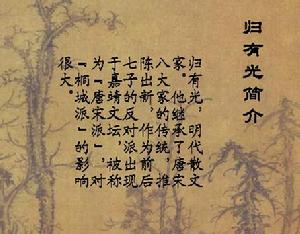 归有光简介
归有光，明代散文
家。他继承了唐宋
八大家的传统，推
陈出新，作为前后
七子的反对派出现
于嘉靖文坛，被称
为『唐宋派』，对
『桐城派』的影响
很大。